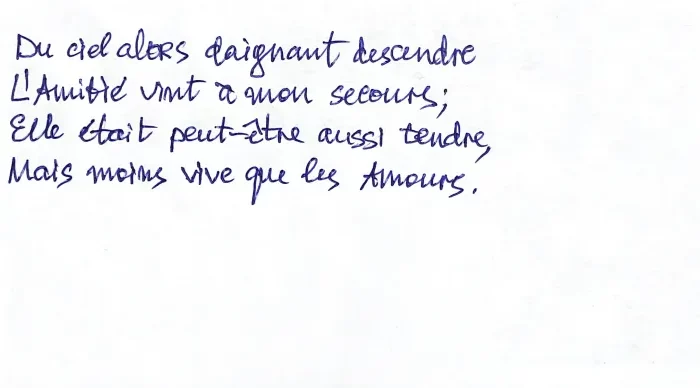 Du ciel alors daignant descendre
L'Amitié vint à mon secours;
Elle était peut-être aussi tendre,
Mais moins vive que les Amours.